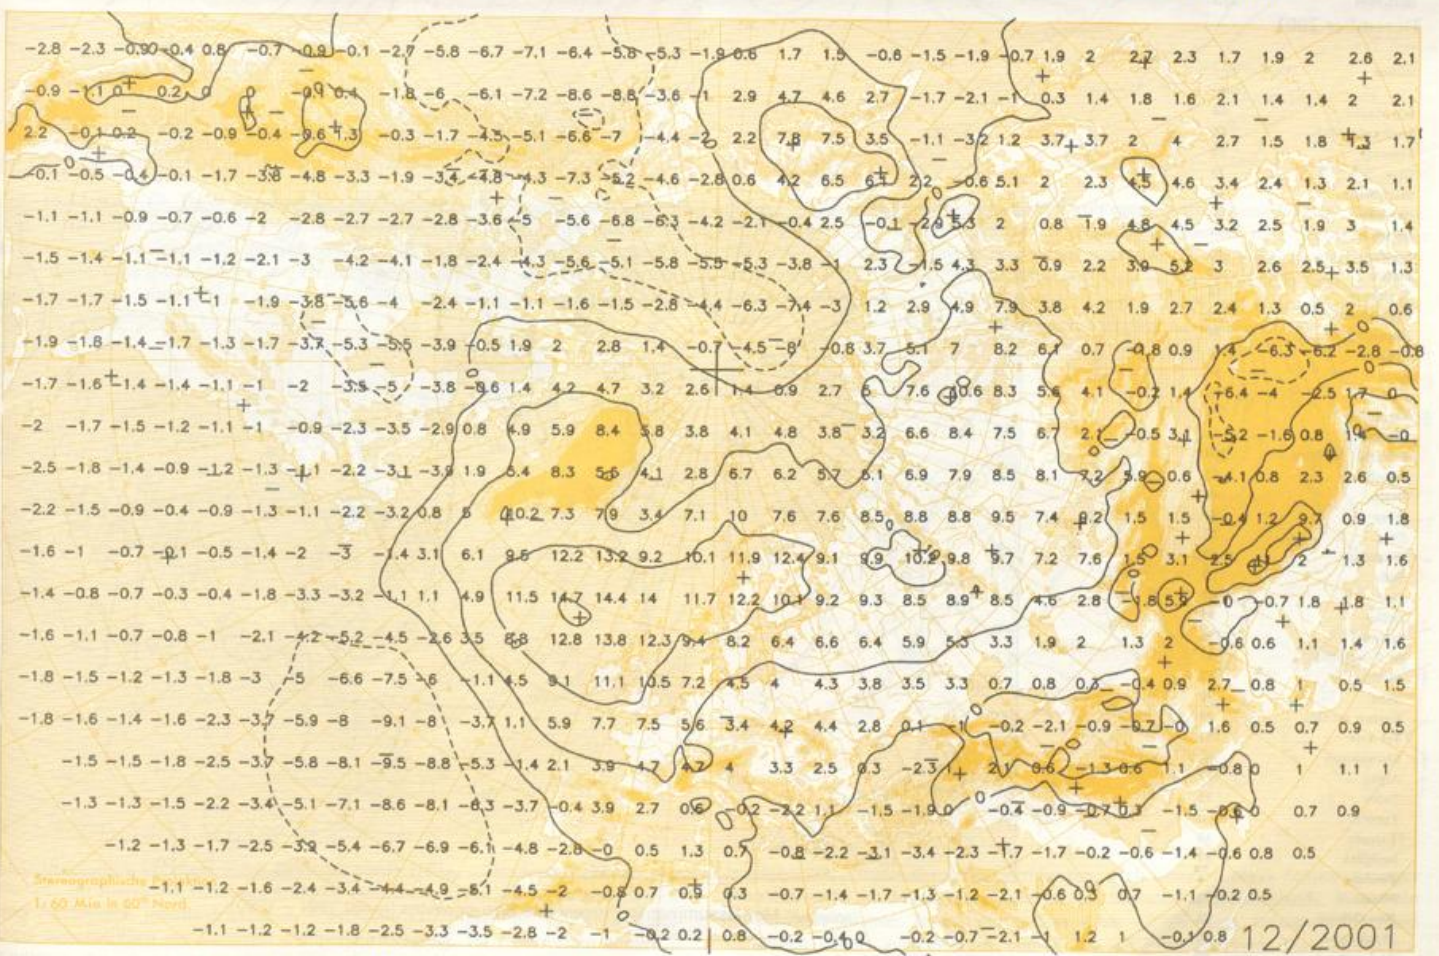 -2.8 -2.3 -0.9 -0.4 0.8 -0.7 -0.9 -0.1 -2.7 -5.8 -6.7 -7.1 -6.4 -5.8 -5.3 -1.9 0.6 1.7 1.5 -0.6 -1.5 -1.9 -0.7 1.9 2 2.7 2.3 1.7 1.9 2 2.6 2.1
-0.9 -1.1 0 0.2 0 0 0.4 -1.8 -6 -6.1 -7.2 -8.6 -8.8 -3.6 -1 2.9 4.7 4.6 2.7 -1.7 -2.1 -1 0.3 1.4 1.8 1.6 2.1 1.4 1.4 2 2.1
2.2 -0.1 0.2 -0.2 -0.9 -0.4 -0.6 1.3 -0.3 -1.7 -4.5 -5.1 -6.6 -7 -4.4 -2 2.2 7.8 7.5 3.5 -1.1 -3.2 1.2 3.7 3.7 2 4 2.7 1.5 1.8 1.3 1.7
-0.1 -0.5 -0.4 -0.1 -1.7 -3.8 -4.8 -3.3 -1.9 -3.4 -4.8 -4.3 -7.3 -5.2 -4.6 -2.8 0.6 4.2 6.5 6.1 2.2 -0.6 5.1 2 2.3 4.5 4.6 3.4 2.4 1.3 2.1 1.1
-1.1 -1.1 -0.9 -0.7 -0.6 -2 -2.8 -2.7 -2.7 -2.8 -3.6 -5 -5.6 -6.8 -6.3 -4.2 -2.1 -0.4 2.5 -0.1 -2.9 5.3 2 0.8 1.9 4.8 4.5 3.2 2.5 1.9 3 1.4
-1.5 -1.4 -1.1 -1.1 -1.2 -2.1 -3 -4.2 -4.1 -1.8 -2.4 -4.3 -5.6 -5.1 -5.8 -5.5 -5.3 -3.8 -1 2.3 -1.5 4.3 3.3 0.9 2.2 3.9 5.2 3 2.6 2.5 3.5 1.3
-1.7 -1.7 -1.5 -1.1 -1 -1.9 -3.8 -5.6 -4 -2.4 -1.1 -1.1 -1.6 -1.5 -2.8 -4.4 -6.3 -7.4 -3 1.2 2.9 4.9 7.9 3.8 4.2 1.9 2.7 2.4 1.3 0.5 2 0.6
-1.9 -1.8 -1.4 -1.7 -1.3 -1.7 -3.7 -5.3 -5.5 -3.9 -0.5 1.9 2 2.8 1.4 -0.7 -4.5 -8 -0.8 3.7 5.1 7 8.2 6.1 0.7 -0.8 0.9 1.4 -6.3 -6.2 -2.8 -0.8
0
-1.7 -1.6 -1.4 -1.4 -1.1 -1 -2 -3.5 -5 -3.8 -0.6 1.4 4.2 4.7 3.2 2.6 1.4 0.9 2.7 6 7.6 10.6 8.3 5.6 4.1 -0.2 1.4 -6.4 -4 -2.5 1.7 0
-2 -1.7 -1.5 -1.2 -1.1 -1 -0.9 -2.3 -3.5 -2.9 0.8 4.9 5.9 8.4 5.8 3.8 4.1 4.8 3.8 3.2 6.6 8.4 7.5 6.7 2.1 -0.5 3.1 -5.2 -1.6 0.8 1.4 -0
-2.5 -1.8 -1.4 -0.9 -1.2 -1.3 -1.1 -2.2 -3.1 -3.9 1.9 5.4 8.3 5.6 4.1 2.8 6.7 6.2 5.7 5.1 6.9 7.9 8.5 8.1 7.2 5.9 0.6 -4.1 0.8 2.3 2.6 0.5
-2.2 -1.5 -0.9 -0.4 -0.9 -1.3 -1.1 -2.2 -3.2 0.8 5 10.2 7.3 7.9 3.4 7.1 10 7.6 7.6 8.5 8.8 8.8 9.5 7.4 9.2 1.5 1.5 -0.4 1.2 9.7 0.9 1.8
-1.6 -1 -0.7 -0.1 -0.5 -1.4 -2 -3 -1.4 3.1 6.1 9.6 12.2 13.2 9.2 10.1 11.9 12.4 9.1 9.9 10.2 9.8 9.7 7.2 7.6 1.5 3.1 2.5 11 2 1.3 1.6
-1.4 -0.8 -0.7 -0.3 -0.4 -1.8 -3.3 -3.2 -1.1 1.1 4.9 11.5 14.7 14.4 14 11.7 12.2 10.1 9.2 9.3 8.5 8.9 8.5 4.6 2.8 -1.8 5.9 -0 -0.7 1.8 1.8 1.1
-1.6 -1.1 -0.7 -0.8 -1 -2.1 -4.2 -5.2 -4.5 -2.6 3.5 8.8 12.8 13.8 12.3 9.4 8.2 6.4 6.6 6.4 5.9 5.3 3.3 1.9 2 1.3 2 -0.6 0.6 1.1 1.4 1.6
-1.8 -1.5 -1.2 -1.3 -1.8 -3 -5 -6.6 -7.5 -6 -1.1 4.5 9.1 11.1 10.5 7.2 4.5 4 4.3 3.8 3.5 3.3 0.7 0.8 0.3 -0.4 0.9 2.7 0.8 1 0.5 1.5
-1.8 -1.6 -1.4 -1.6 -2.3 -3.7 -5.9 -8 -9.1 -8 -3.7 1.1 5.9 7.7 7.5 5.6 3.4 4.2 4.4 2.8 0.1 -1 -0.2 -2.1 -0.9 -0.7 -0 1.6 0.5 0.7 0.9 0.5
-1.5 -1.5 -1.8 -2.5 -3.7 -5.8 -8.1 -9.5 -8.8 -5.3 -1.4 2.1 3.9 4.7 4.7 4 3.3 2.5 0.3 -2.3 1 2.1 0.6 -1.3 0.6 1.1 -0.8 0 1 1.1 1
-1.3 -1.3 -1.5 -2.2 -3.4 -5.1 -7.1 -8.6 -8.1 -6.3 -3.7 -0.4 3.9 2.7 0.6 -0.2 -2.2 1.1 -1.5 -1.9 0 0 -0.4 -0.9 -0.7 0.3 -1.5 -0.6 0 0.7 0.9
-1.2 -1.3 -1.7 -2.5 -3.9 -5.4 -6.7 -6.9 -6.1 -4.8 -2.8 -0 0.5 1.3 0.7 -0.8 -2.2 -3.1 -3.4 -2.3 -1.7 -1.7 -0.2 -0.6 -1.4 -0.6 0.8 0.5
Stereographische Projektion
-1.1 -1.2 -1.6 -2.4 -3.4 -4.4 -4.9 -5.1 -4.5 -2 -0.8 0.7 0.9 0.3 -0.7 -1.4 -1.7 -1.3 -1.2 -2.1 -0.6 0.3 0.7 -1.1 -0.2 0.5
1:60 Mio in 60° Nord
0
-1.1 -1.2 -1.2 -1.8 -2.5 -3.3 -3.5 -2.8 -2 -1 -0.2 0.2 0.8 -0.2 -0.4 0 -0.2 -0.7 -2.1 -1 1.2 1 -0.1 0.8
12/2001